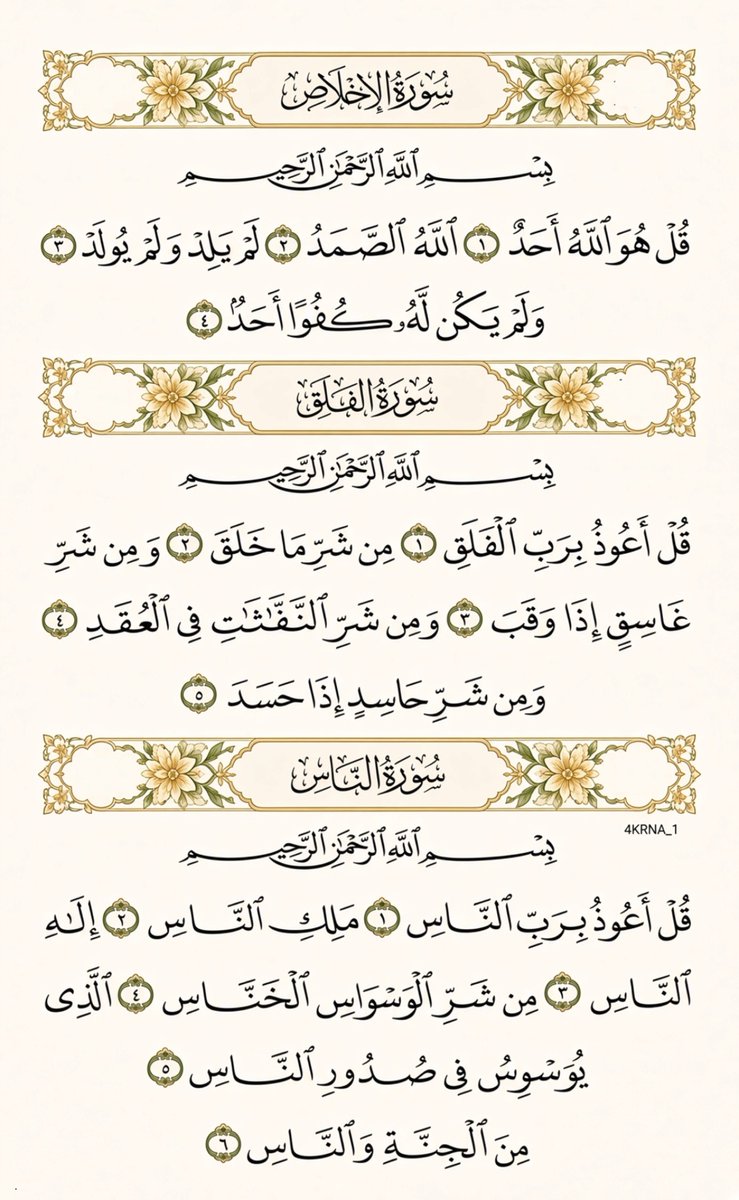 سُورَةُ الإِخْلَاصِ
بِسْمِ ٱللَّهِ ٱلرَّحْمَٰنِ ٱلرَّحِيمِ
قُلْ هُوَ ٱللَّهُ أَحَدٌ ١ ٱللَّهُ ٱلصَّمَدُ ٢ لَمْ يَلِدْ وَلَمْ يُولَدْ ٣
وَلَمْ يَكُن لَّهُۥ كُفُوًا أَحَدٌۢ ٤
سُورَةُ الفَلَقِ
بِسْمِ ٱللَّهِ ٱلرَّحْمَٰنِ ٱلرَّحِيمِ
قُلْ أَعُوذُ بِرَبِّ ٱلْفَلَقِ ١ مِن شَرِّ مَا خَلَقَ ٢ وَمِن شَرِّ
غَاسِقٍ إِذَا وَقَبَ ٣ وَمِن شَرِّ ٱلنَّفَّٰثَٰتِ فِى ٱلْعُقَدِ ٤
وَمِن شَرِّ حَاسِدٍ إِذَا حَسَدَ ٥
سُورَةُ النَّاسِ
4KRNA_1
بِسْمِ ٱللَّهِ ٱلرَّحْمَٰنِ ٱلرَّحِيمِ
قُلْ أَعُوذُ بِرَبِّ ٱلنَّاسِ ١ مَلِكِ ٱلنَّاسِ ٢ إِلَٰهِ
ٱلنَّاسِ ٣ مِن شَرِّ ٱلْوَسْوَاسِ ٱلْخَنَّاسِ ٤ ٱلَّذِى
يُوَسْوِسُ فِى صُدُورِ ٱلنَّاسِ ٥
مِنَ ٱلْجِنَّةِ وَٱلنَّاسِ ٦